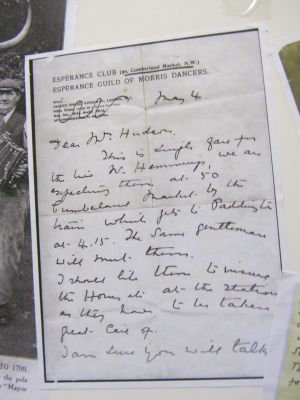 ESPERANCE CLUB (50, Cumberland Market, N.W.)
ESPERANCE GUILD OF MORRIS DANCERS.
May 4
Dear Mr. Hudson,
This is single fare for
the two Mr. Hemmings, we are
expecting them at 50
Cumberland Market by the
train which gets to Paddington
at 4.15. The same gentleman
will meet them.
I should like them to insure
the Horns etc at the Station
as they have to be taken
great care of.
I am sure you will talk
TO 1700.
the pole
"Mayor